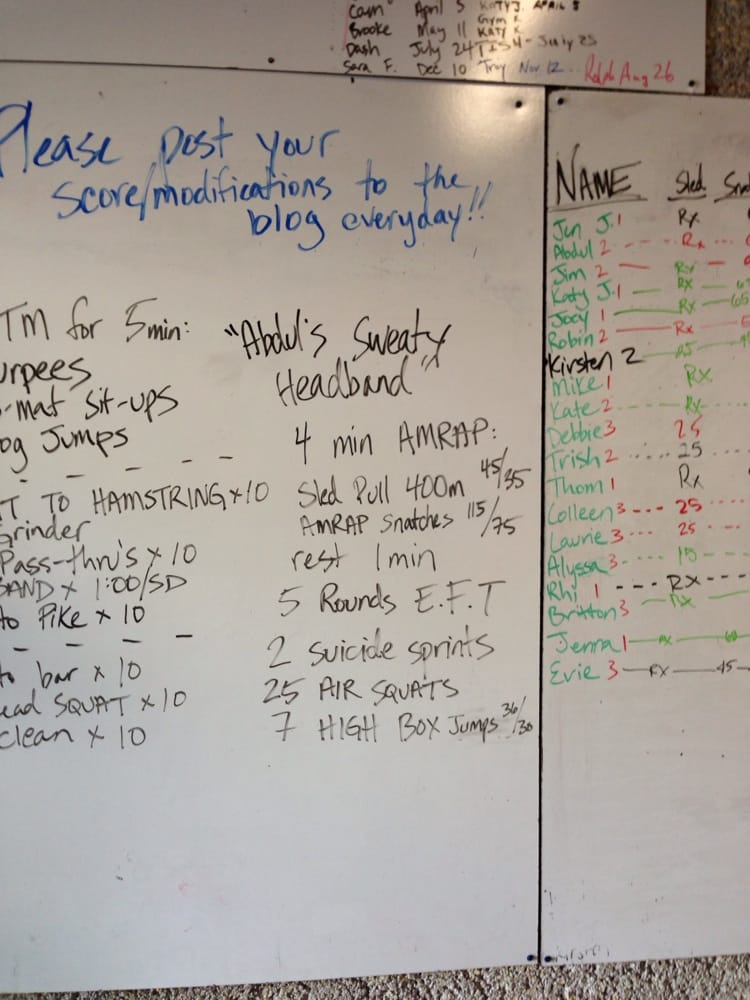 April 5 KATY J. APRIL 5
Brooke May 11 KATY
Dash July 24 July 25
Sara F. Dec 10 Troy Nov 12 Ralph Aug 26
Please post your
score/modifications to the
blog everyday!!
TM for 5 min:
urpees
-mat Sit-ups
og Jumps
T TO HAMSTRING x 10
Grinder
Pass-thru's x 10
BAND x 1:00/SD
to Pike x 10
to bar x 10
ead SQUAT x 10
clean x 10
"Abdul's Sweaty
Headband"
4 min AMRAP:
Sled Pull 400m 45/35
AMRAP Snatches 115/75
rest 1 min
5 Rounds E.F.T
2 suicide sprints
25 AIR SQUATS
7 HIGH BOX Jumps 36/30
NAME Sled Sna
Jen J. 1 Rx
Abdul 2 Rx
Jim 2 Rx
Katy J. 1 Rx
Joey 1 Rx 65
Robin 2 Rx
Kirsten 2
Mike 1 Rx
Kate 2 Rx
Debbie 3 25
Trish 2 25
Thom 1 Rx
Colleen 3 25
Laurie 3 25
Alyssa 3 15
Rhi 1 Rx
Britton 3 Rx
Jenna 1 Rx
Evie 3 Rx 45